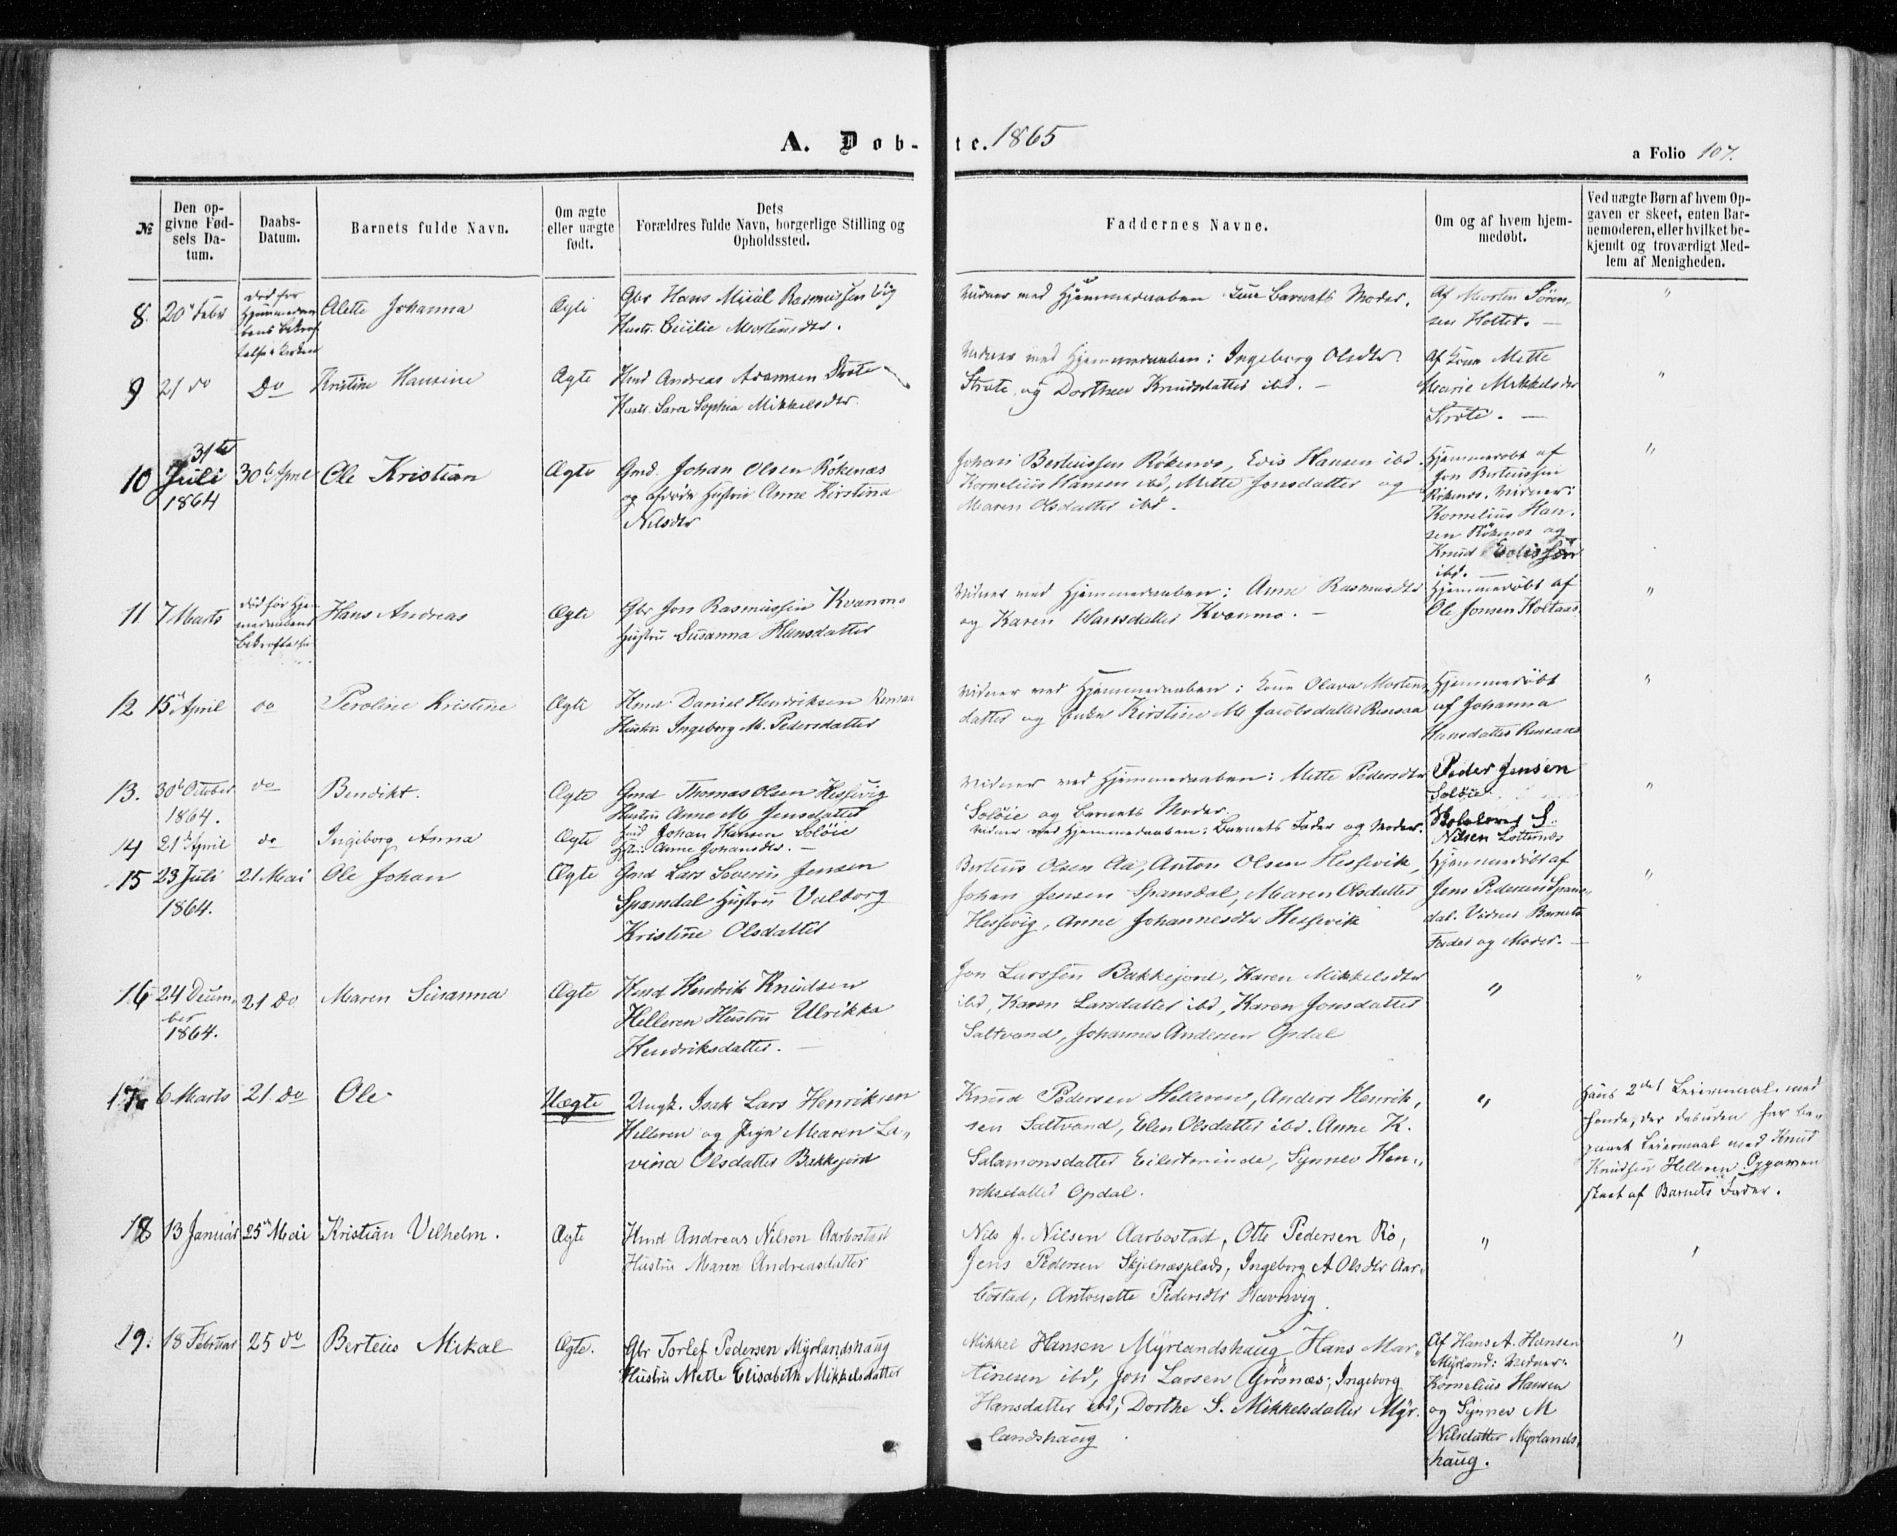 A. Døb-te. 1865
a Folio 107.
№
Den opgivne Fødsels Datum.
Daabs-Datum.
Barnets fulde Navn.
Om ægte eller uægte født.
Dets Forældres fulde Navn, borgerlige Stilling og Opholdssted.
Faddernes Navne.
Om og af hvem hjemmedøbt.
Ved uægte Børn af hvem Opgaven er skeet, enten Barnemoderen, eller hvilket bekjendt og troværdigt Medlem af Menigheden.
8. 20 Febr
død før Hjemmedaabens Bekræftelse i Kirken
Alette Johanna
Ægte
Gbr Hans Rasmussen
Hustr. Cecilie Mortensdtr.
Vidner med Hjemmedaaben Barnets Moder.
Af Morten Sørensen Holtet. —
"
9 21 do
Do
Kristine Hansine
Ægte
Hmd Andreas Strøte
Hustr. Sara Sophia Mikkelsdtr.
Vidner med Hjemmedaaben: Ingeborg Olsdtr
Strøte og Dorthea Knudsdatter ibd. —
Af Mette Marie Mikkelsdtr Strøte. —
"
10 31te Juli 1864
30te April
Ole Kristian
Ægte
Gmd. Johan Olsen Røkenæs
og afdøde Hustru Anne Kirstina
Nilsdtr
Johan Berteussen Røkenæs, Edis Hansen ibd.
Kornelius Hansen ibd, Mette Jonsdatter og
Maren Olsdatter ibd.
Hjemmedøbt af
Jon Berteussen
Røkenæs. Vidner:
Kornelius Hansen Røkenæs og
Knud
ibd. —
"
11 7 Marts
død før Hjemmedaabens Bekræftelse
Hans Andreas
Ægte
Gbr Jon Rasmussen Kvanmo
Hustru Susanna Hansdatter
Vidner med Hjemmedaaben: Anne Rasmusdtr
og Karen Hansdatter Kvanmo. —
Hjemmedøbt af
Ole Jonsen
"
12 15 April
do
Peroline Kristine
Ægte
Hmd Daniel Hendriksen Rensaa
Hustru Ingeborg M. Pedersdatter
Vidner ved Hjemmedaaben: Kone Olava Mortensdatter og Kirstine M Jacobsdatter Rensaa
Hjemmedøbt
af Johanna
Hansdatter Rensaa
"
13. 30te October 1864.
do
Bendikt.
Ægte
Gmd Thomas Olsen Hessevig
Hustru Anne M Jensdatter
Vidner ved Hjemmedaaben: Mette Pedersdtr
Soløie og Barnets Moder.
Peder Jensen
Soløie
"
14 21de April
do
Ingeborg Anna
Ægte
Hmd Johan Hansen Soløie
Hstru Anne Johansdtr. —
Vidner ved Hjemmedaaben: Barnets Fader og Moder.
Nilsen
15 23 Juli 1864.
21 Mai
Ole Johan
Ægte
Gmd Lars Severin Jensen
Spansdal Hustru Valborg
Kristine Olsdatter
Berteus Olsen Aa, Anton Olsen Hessevik,
Johan Jensen Spansdal, Maren Olsdatter
Hessevig, Anne Johannesdtr Hessevik
Hjemmedøbt af
Jens Pedersen Spansdal. Vidner Barnets
Fader og Moder. —
"
16 24 December 1864.
21 Do
Maren Susanna
Ægte
Hmd Hendrik Knudsen
Helleren Hustru Ulrikka
Hendriksdatter. —
Jon Larssen Bakkejord, Karen Mikkelsdtr
ibd, Karen Larsdatter ibd, Karen Jonsdatter
Saltvand, Johannes Andersen Opdal
"
"
17 6 Marts
21 do
Ole
Uægte
Ungk. Isak Lars Henriksen
Helleren og Pige Maren Lavina Olsdatter Bakkejord
Knud Pedersen Helleren, Anders Henriksen Saltvand, Elen Olsdatter ibd. Anne K.
Salamonsdatter Eilertsrinde, Synnev Henriksdatter Opdal.
"
Hans 2det Leiermaal, med
hende, der desuden har begaaet Leiermaal med Knud
Knudsen Helleren Opgaven
skeet af Barnets Fader.
18 13 Januar
25 Mai
Kristian Vilhelm.
Ægte
Hmd Andreas Nilsen Aarbostad
Hustru Maren Andreasdatter
Nils J. Nilsen Aarbostad, Otte Pedersen Rø,
Jens Pedersen Skjelnæsplads, Ingeborg A Olsdtr Aarbostad, Antonette Pedersdtr Havnvig
"
"
19. 18 Februar
25 do
Berteus Mikal
Ægte.
Gbr Torlef Pedersen Myrlandshaug
Hustru Mette Elisabeth Mikkelsdatter
Mikkel Hansen Myrlandshaug Hans Martinesen ibd, Jon Larsen Grøsnæs, Ingeborg
Hansdatter ibd, Dorthe S. Mikkelsdatter Myrlandshaug
Af Hans A. Hansen
Myrland: Vidner:
Kornelius Hansen
og Synnev M
Nilsdatter Myrlandshaug.
"